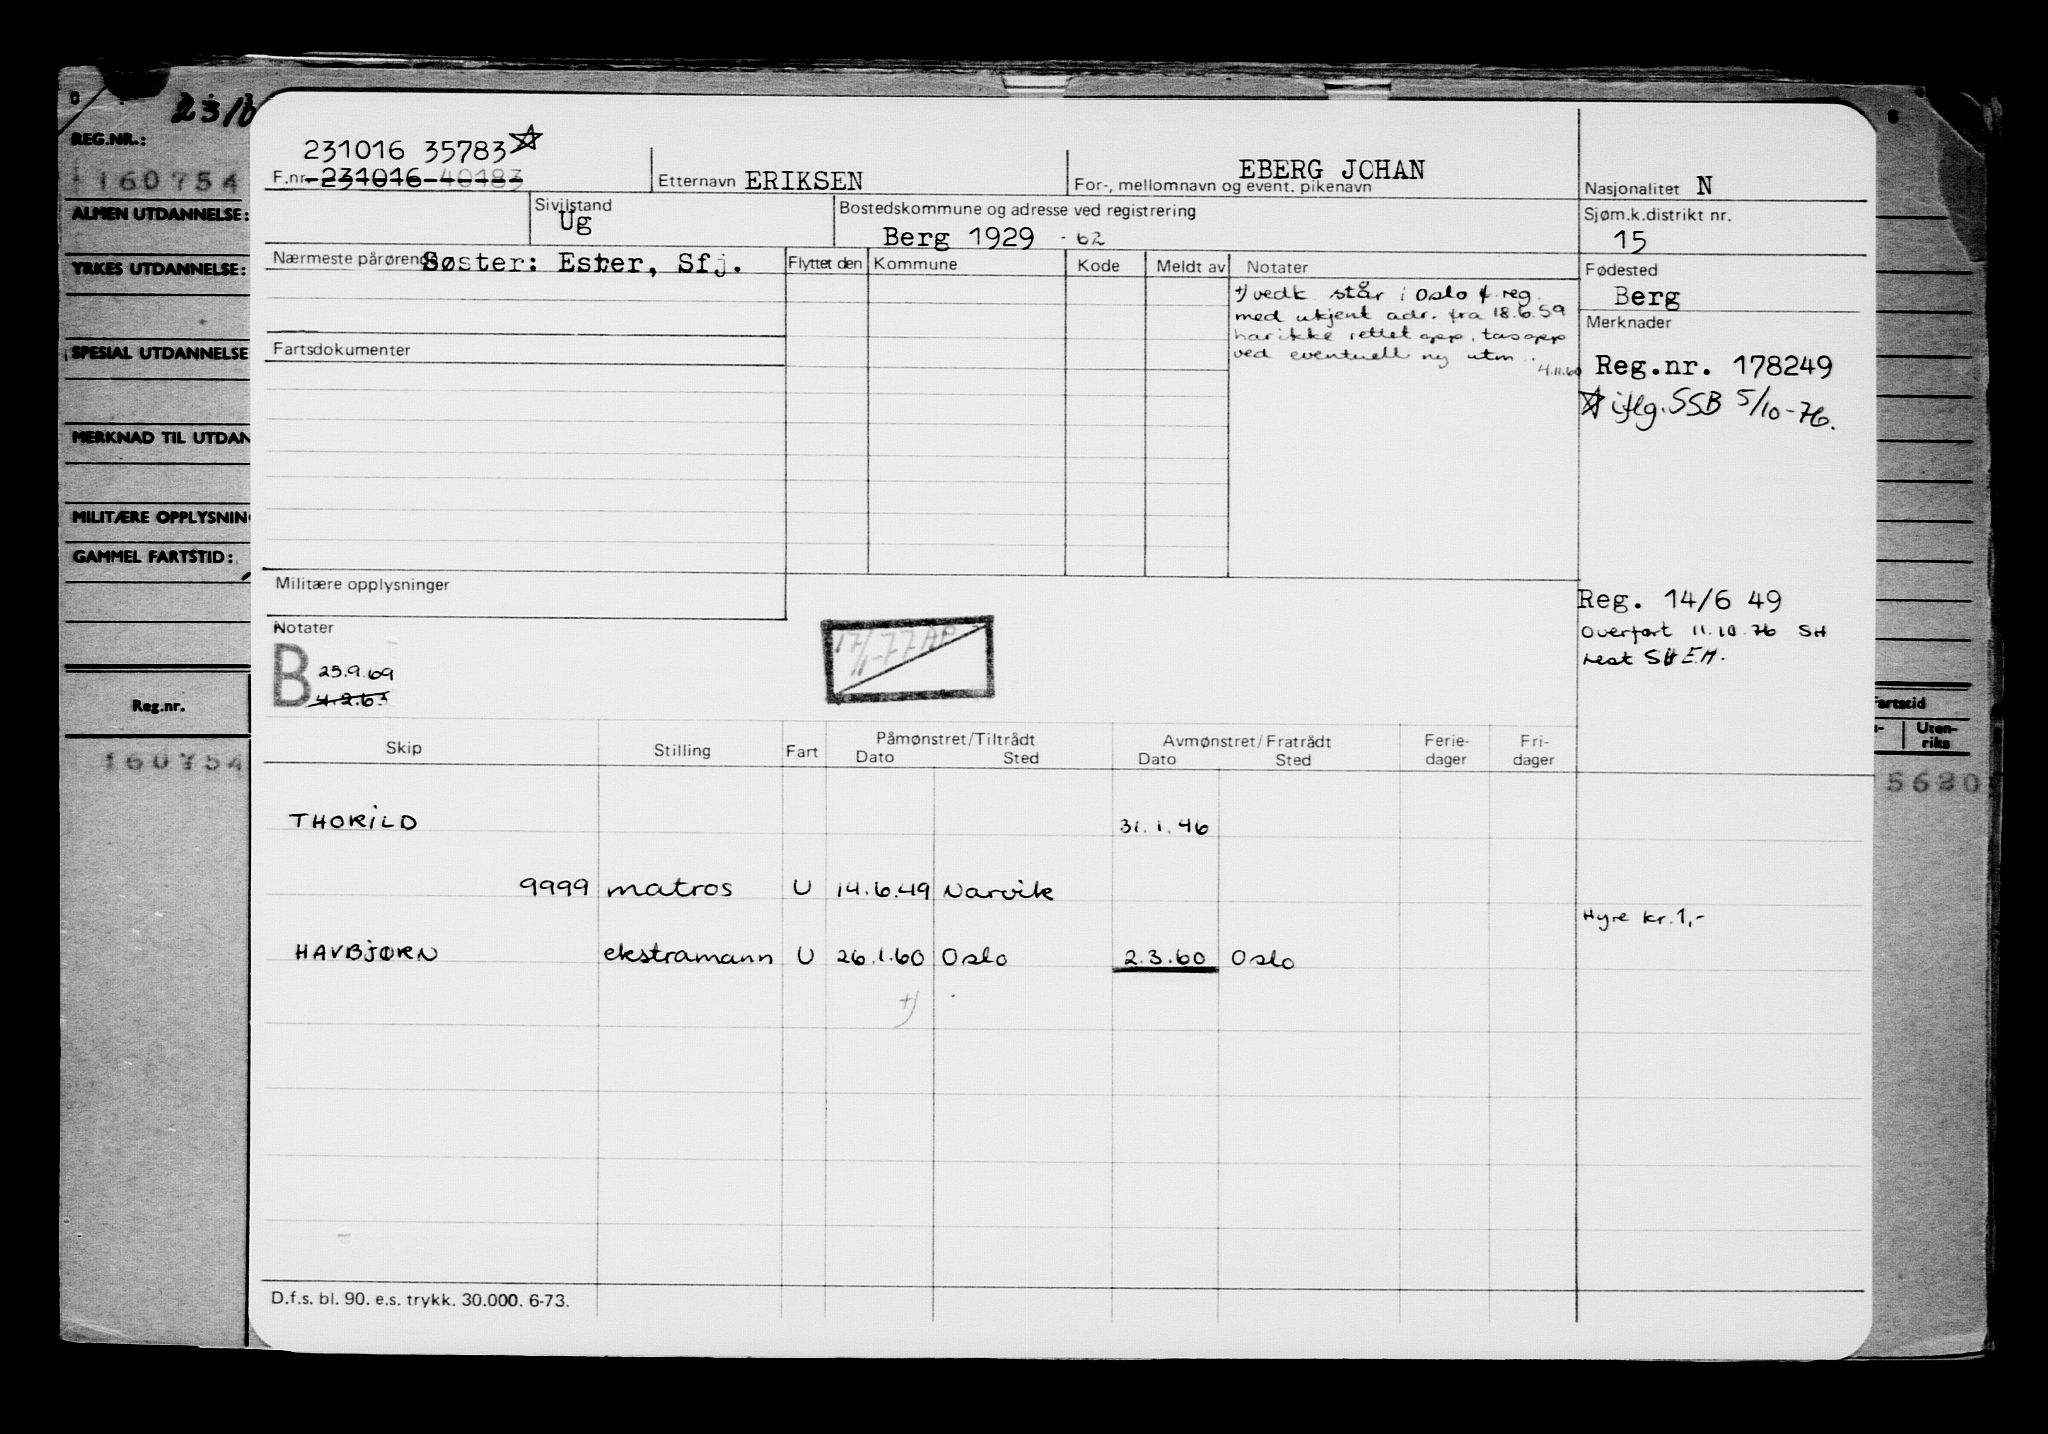 231016 35783☆
F.nr. 231016 40183
Etternavn ERIKSEN
EBERG JOHAN
For-, mellomnavn og event. pikenavn
Nasjonalitet N
Sivilstand
Ug
Bostedskommune og adresse ved registrering
Berg 1929 - 62
Sjøm.k.distrikt nr.
15
Nærmeste pårørende Søster: Ester, Sfj.
Flyttet den Kommune Kode Meldt av Notater
+) vedk står i Oslo f. reg.
med ukjent adr. fra 18.6.59
har ikke rettet opp, tas opp
ved eventuell ny utm..
4.11.60
Fødested
Berg
Merknader
Reg.nr. 178249
☆ iflg. SSB 5/10-76.
Fartsdokumenter
Militære opplysninger
Reg. 14/6 49
Overført 11.10.76 SH
test SH E.H.
Notater
B 25.9.69
17/1-77 AP
Skip Stilling Fart Påmønstret/Tiltrådt Avmønstret/Fratrådt Ferie- Fri-
Dato Sted Dato Sted dager dager
THORILD 31.1.46
9999 matros U 14.6.49 Narvik
Hyre kr. 1,-
HAVBJØRN ekstramann U 26.1.60 Oslo 2.3.60 Oslo
+)
D.f.s. bl. 90. e.s. trykk. 30.000. 6-73.
REG.NR.:
160754
ALMEN UTDANNELSE:
YRKES UTDANNELSE:
SPESIAL UTDANNELSE
MERKNAD TIL UTDAN
MILITÆRE OPPLYSNIN
GAMMEL FARTSTID:
Reg.nr.
160754
artstid
Uten-
riks
5680